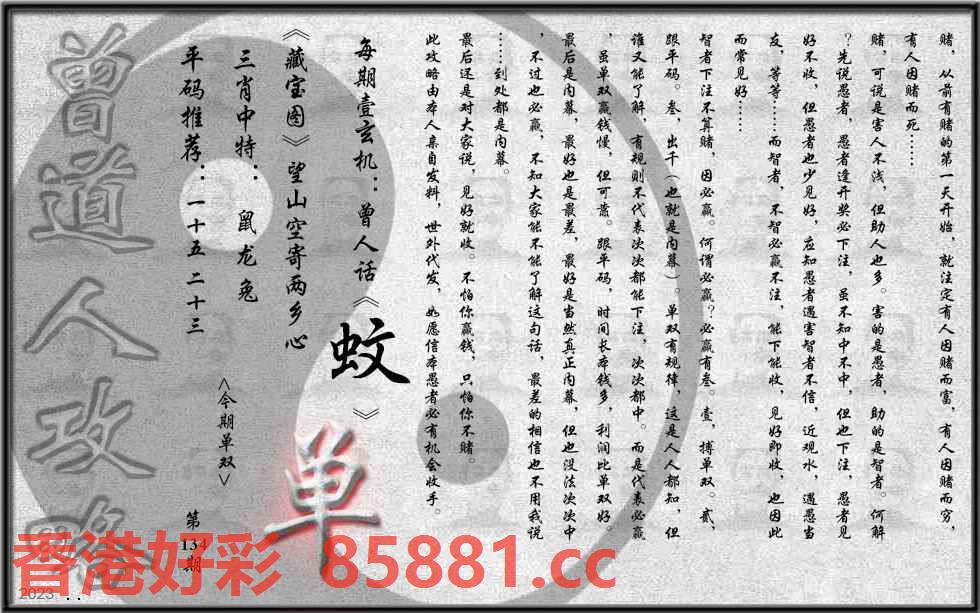 赌，从前有赌的第一天开始，就注定有人因赌而富，有人因赌而穷，
有人因赌而死……
赌，可说是害人不浅，但助人也多。害的是愚者，助的是智者。何解
？先说愚者，愚者逢开奖必下注，虽不知中不中，但也下注，愚者见
好不收，但愚者也少见好，应知愚者遇害智者不信，近观水，遇愚当
友，等等……而智者，不智必赢不注，能下能收，见好即收，也因此
而常见好……
智者下注不算赌，因必赢。何谓必赢？必赢有叁。壹，搏单双。贰，
跟平码。叁，出千（也就是内幕）。单双有规律，这是人人都知，但
谁又能了解，有规则不代表次次都能下注，次次都中。而是代表必赢
，虽单双赢钱慢，但可靠。跟平码，时间长本钱多，利润比单双好。
最后是内幕，最好也是最差，最好是当然真正内幕，但也没法次次中
，不过也必赢，不知大家能不能了解这句话，最差的相信也不用我说
……到处都是内幕。
最后还是对大家说，见好就收。不怕你赢钱，只怕你不赌。
此攻略由本人亲自发料，世外代发，如愿信本愚者必有机会收手。
每期壹玄机：曾人话《蚊》
《藏宝图》望山空寄两乡心
三肖中特：鼠龙兔
平码推荐：一十五 二十三
<今期单双>
单
第
134
期
曾道人攻略
香港好彩 85881.cc
2023